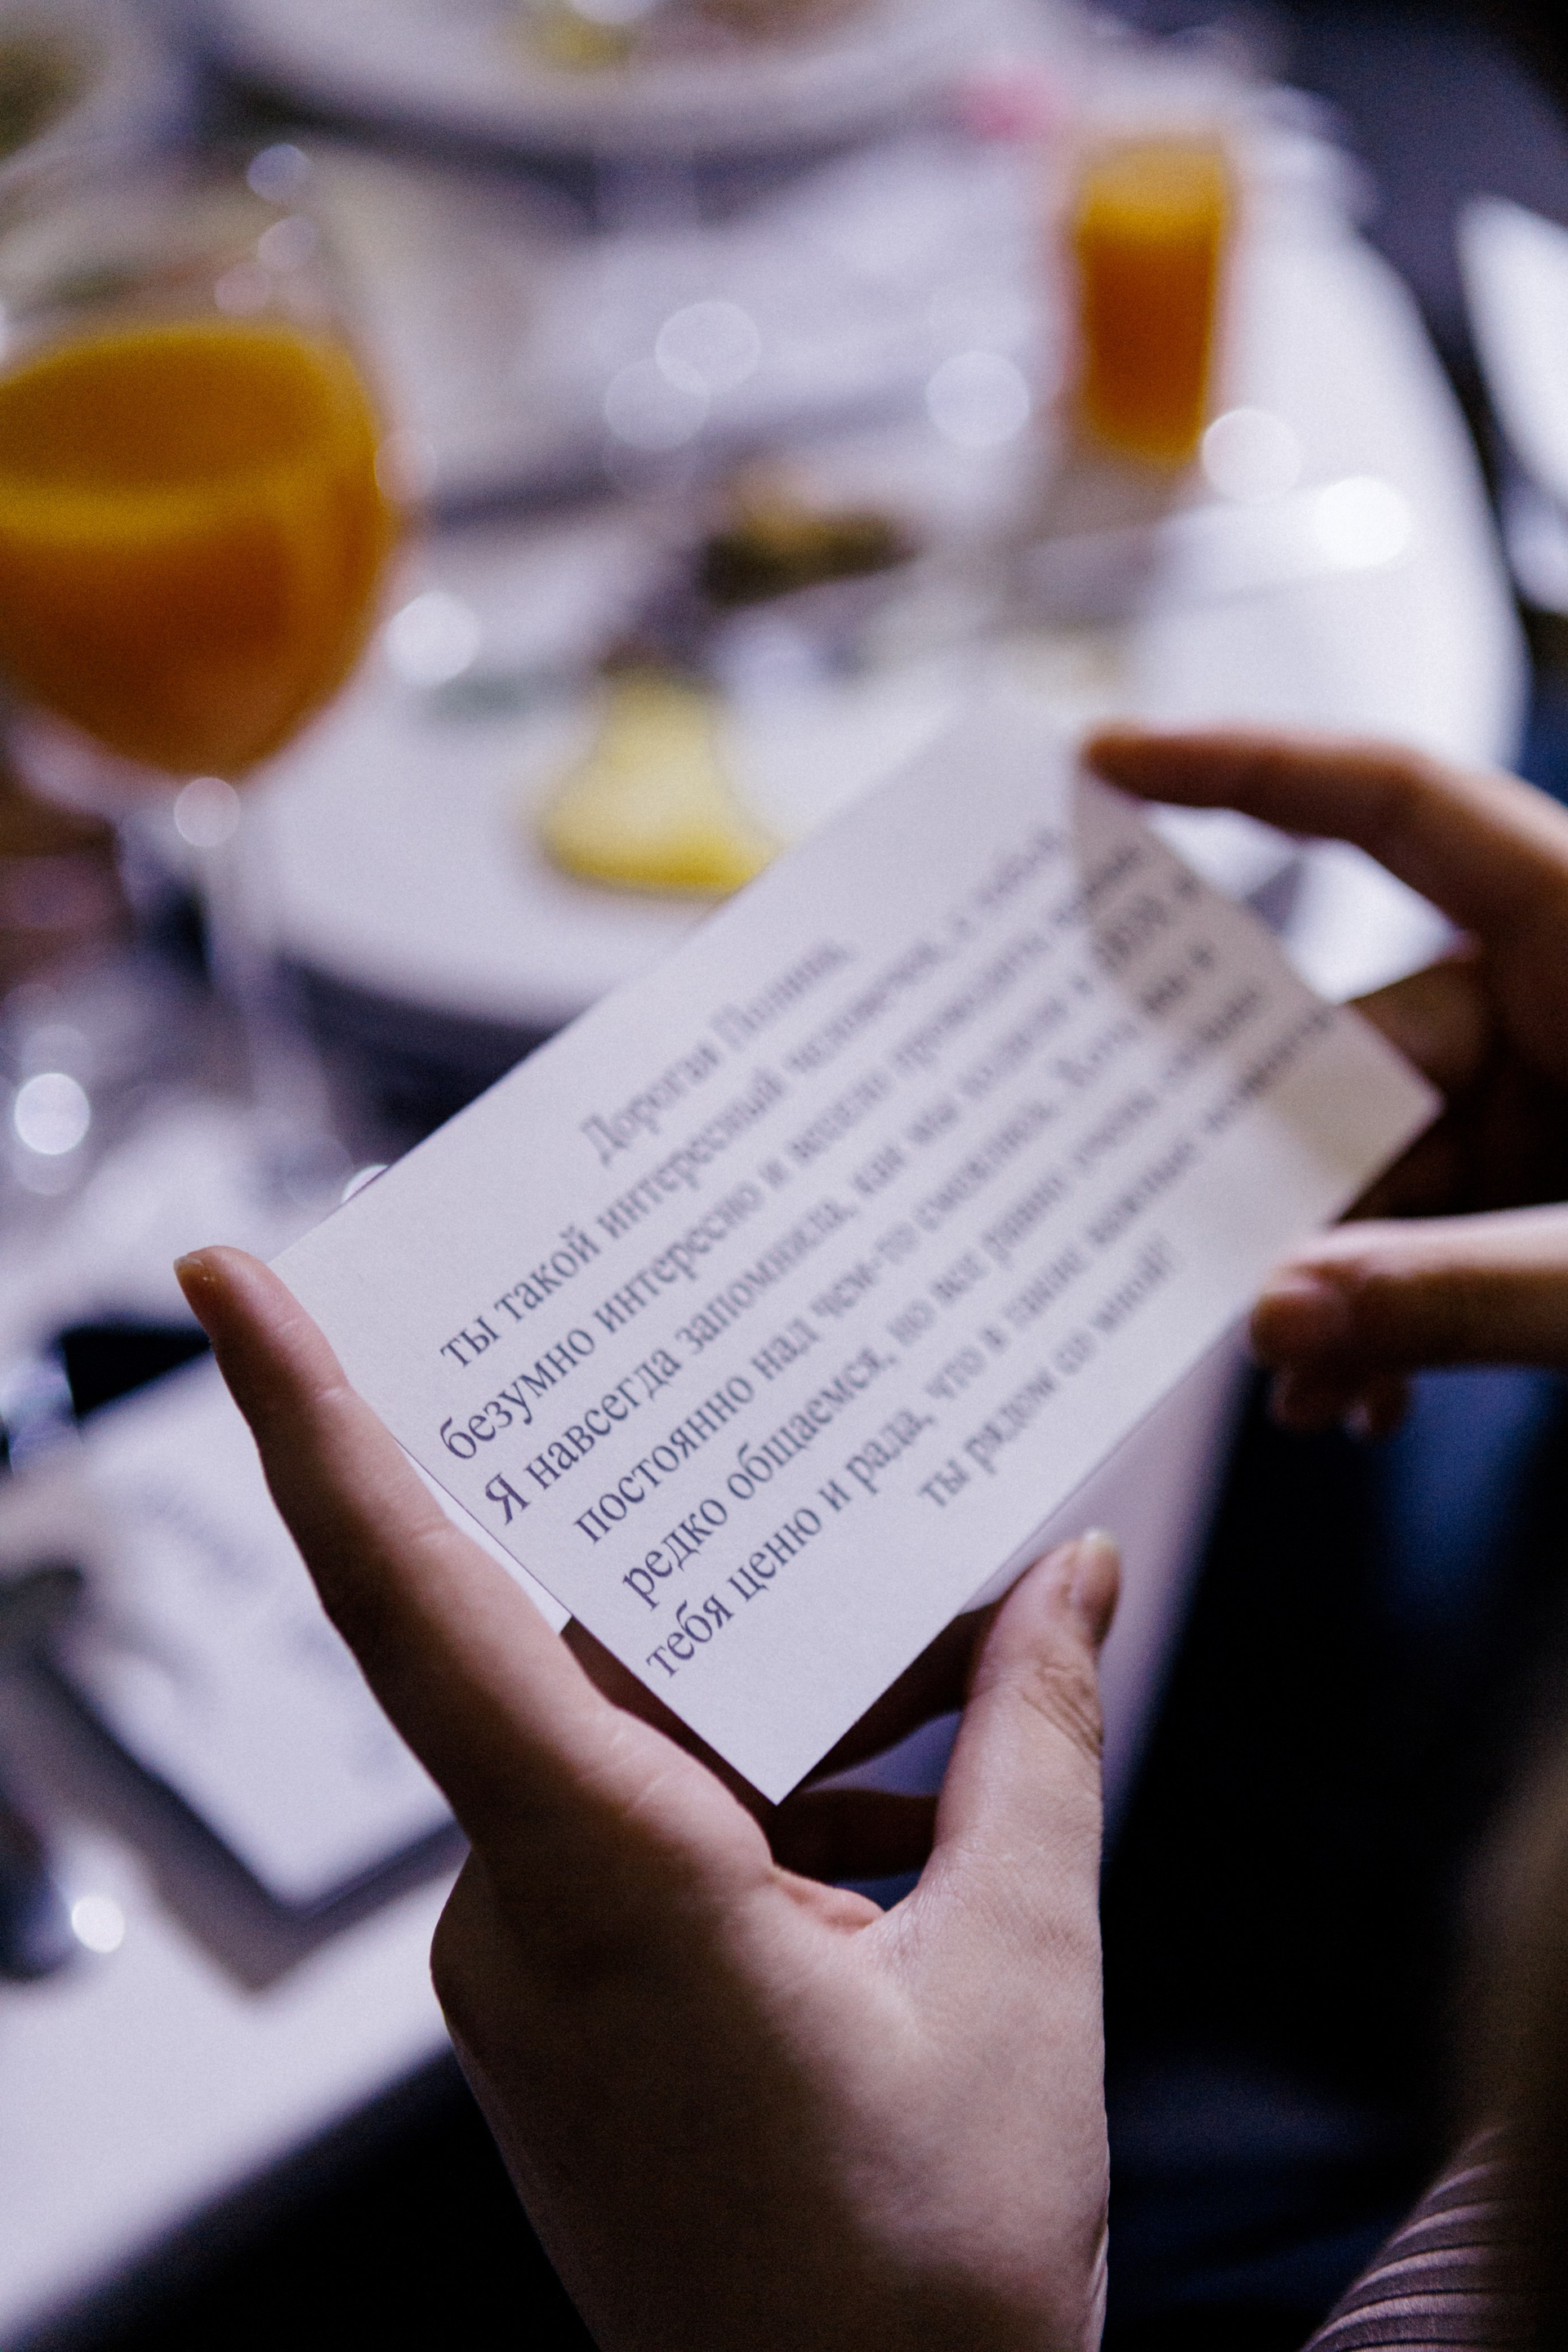 Дорогая Полина,
ты такой интересный человечек, с тобой
безумно интересно и весело проводить
Я навсегда запомнила, как мы ходили в
постоянно над чем-то смеялись. Хоть мы и
редко общаемся, но все равно очень сильно
тебя ценю и рада, что в такие важные моменты
ты рядом со мной!